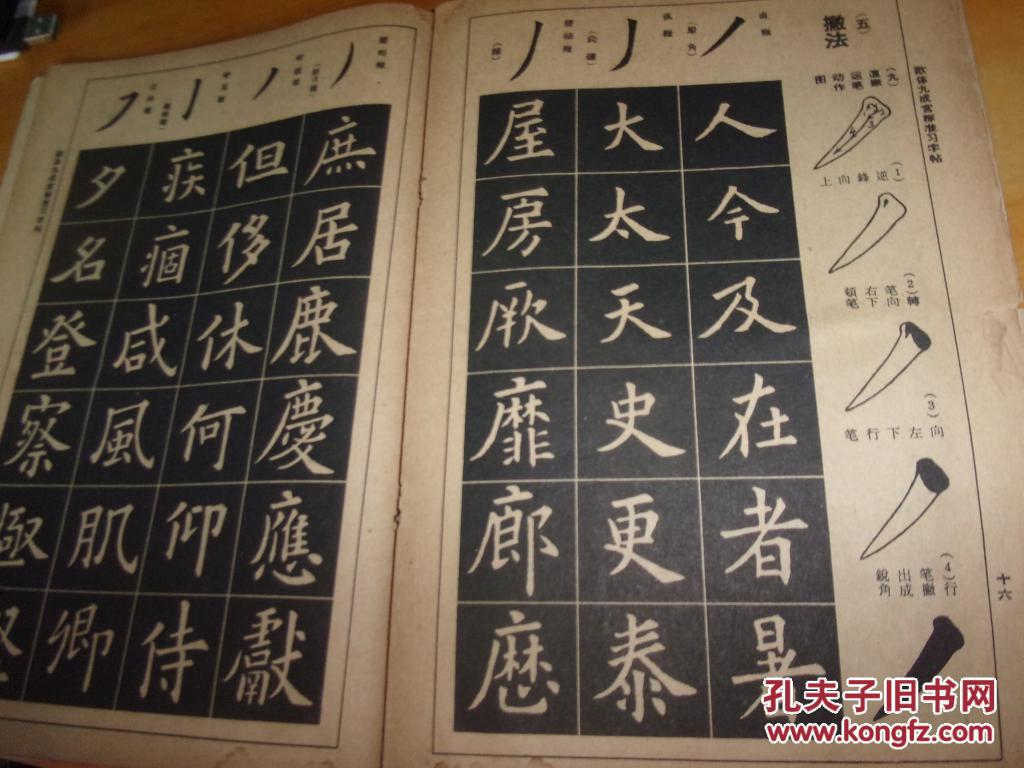 欧体九成宫标准习字帖
十六
(五)
撇法
(九)
直撇
运笔
动作
图
(1)
逆鋒向上
(2)
轉笔右頓
向下笔
(3)
向左下行笔
(4)
行笔出銳
撇成角
直撇
弧撇
人今及在者
大太天史更泰
屋房厥靡廊歷
庶居鹿慶應獻
但侈休何仰侍
疾痼咸風肌卿
夕名登察極
孔夫子旧书网
www.kongfz.com